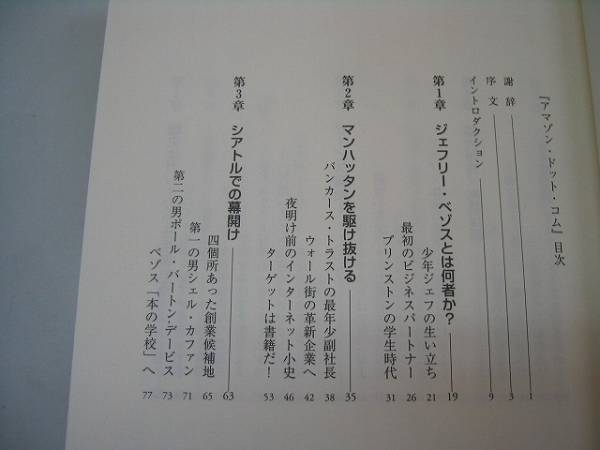 『アマゾン・ドット・コム』目次
謝辞 1
序文 3
イントロダクション 9
第1章 ジェフリー・ベゾスとは何者か? 19
少年ジェフの生い立ち 21
最初のビジネスパートナー 26
プリンストンの学生時代 31
第2章 マンハッタンを駆け抜ける 35
バンカース・トラストの最年少副社長 38
ウォール街の革新企業へ 42
夜明け前のインターネット小史 46
ターゲットは書籍だ! 53
第3章 シアトルでの幕開け 63
四個所あった創業候補地 65
第一の男シェル・カファン 71
第二の男ポール・バートン・デービス 73
ベゾス「本の学校」へ 77